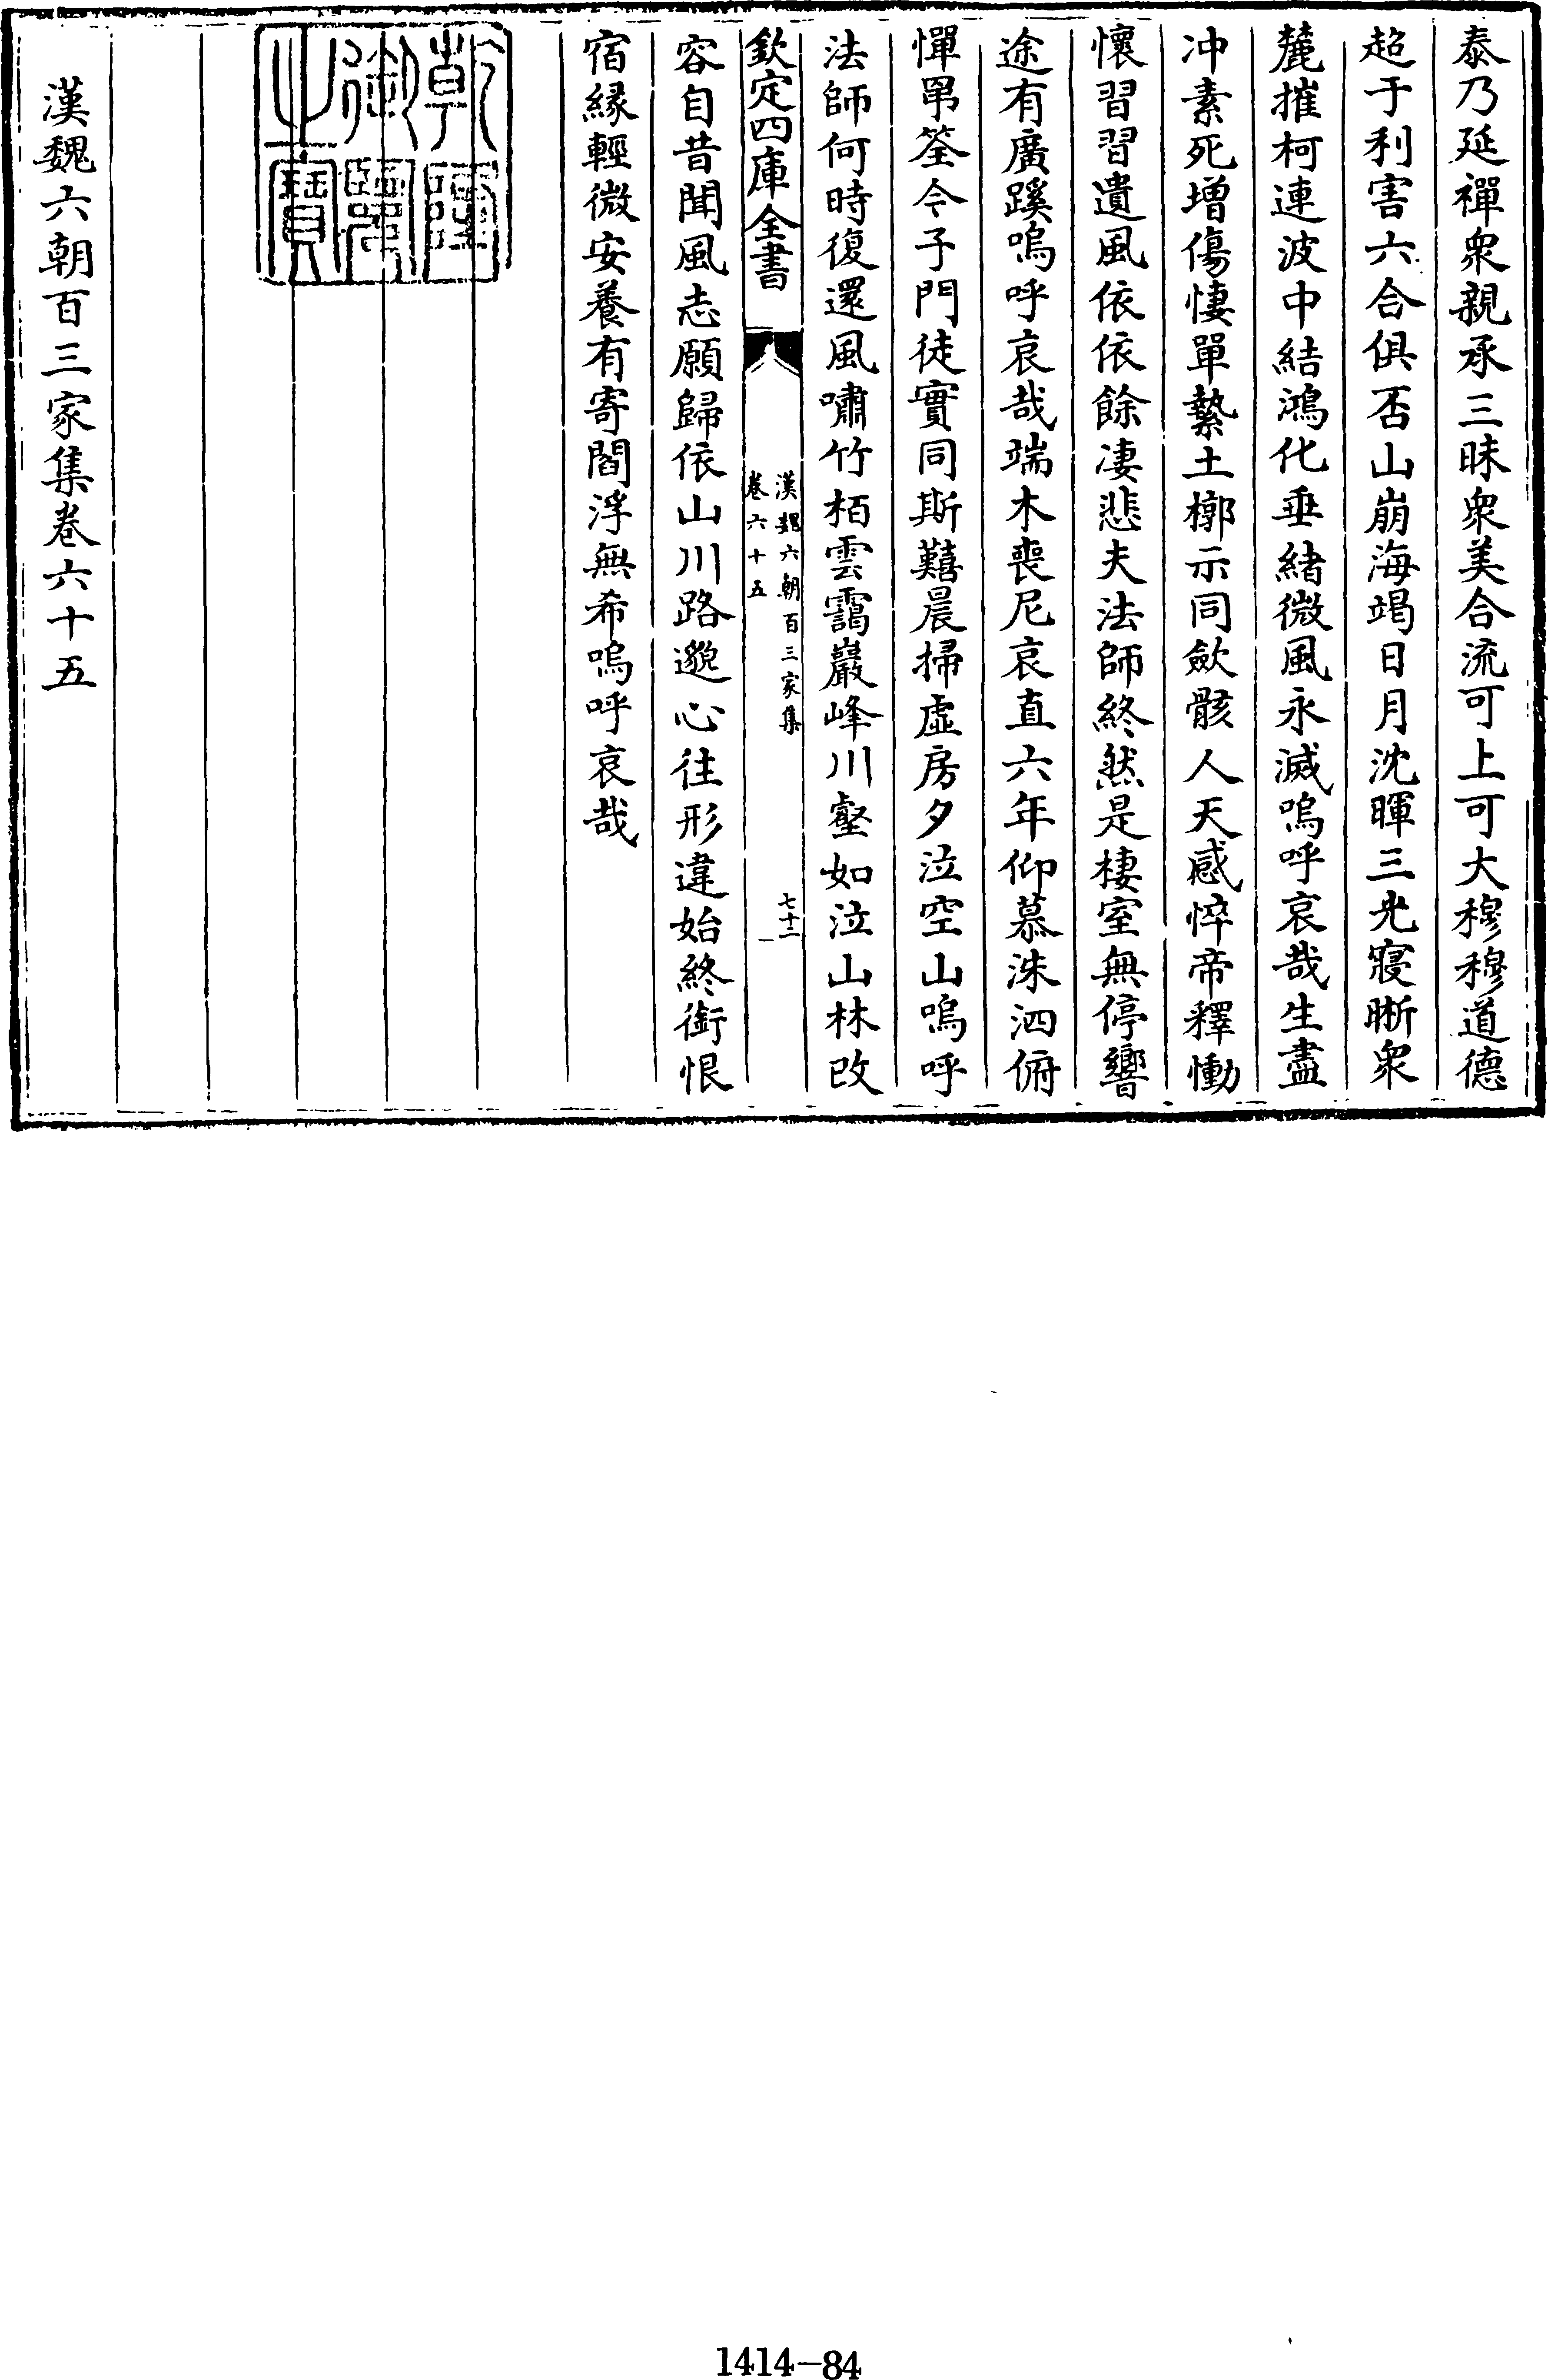 泰乃延禪衆親承三昧衆美合流可上可大穆穆道德
超于利害六合俱否山崩海竭日月沈暉三光寢晰衆
麓摧柯連波中結鴻化垂緒微風永滅嗚呼哀哉生盡
冲素死增傷悽單蓺土槨示同歛骸人天感悴帝釋慟
懷習習遺風依依餘凄悲夫法師終然是棲室無停響
途有廣蹊嗚呼哀哉端木喪尼哀直六年仰慕洙泗俯
憚罤筌今子門徒實同斯囏晨掃虛房夕泣空山嗚呼
法師何時復還風嘯竹栢雲靄巖峰川壑如泣山林改
欽定四庫全書
漢魏六朝百三家集
卷六十五
七十二
容自昔聞風志願歸依山川路邈心往形違始終銜恨
宿緣輕微安養有寄閻浮無希嗚呼哀哉
乾隆御覽之寶
漢魏六朝百三家集卷六十五
1414-84